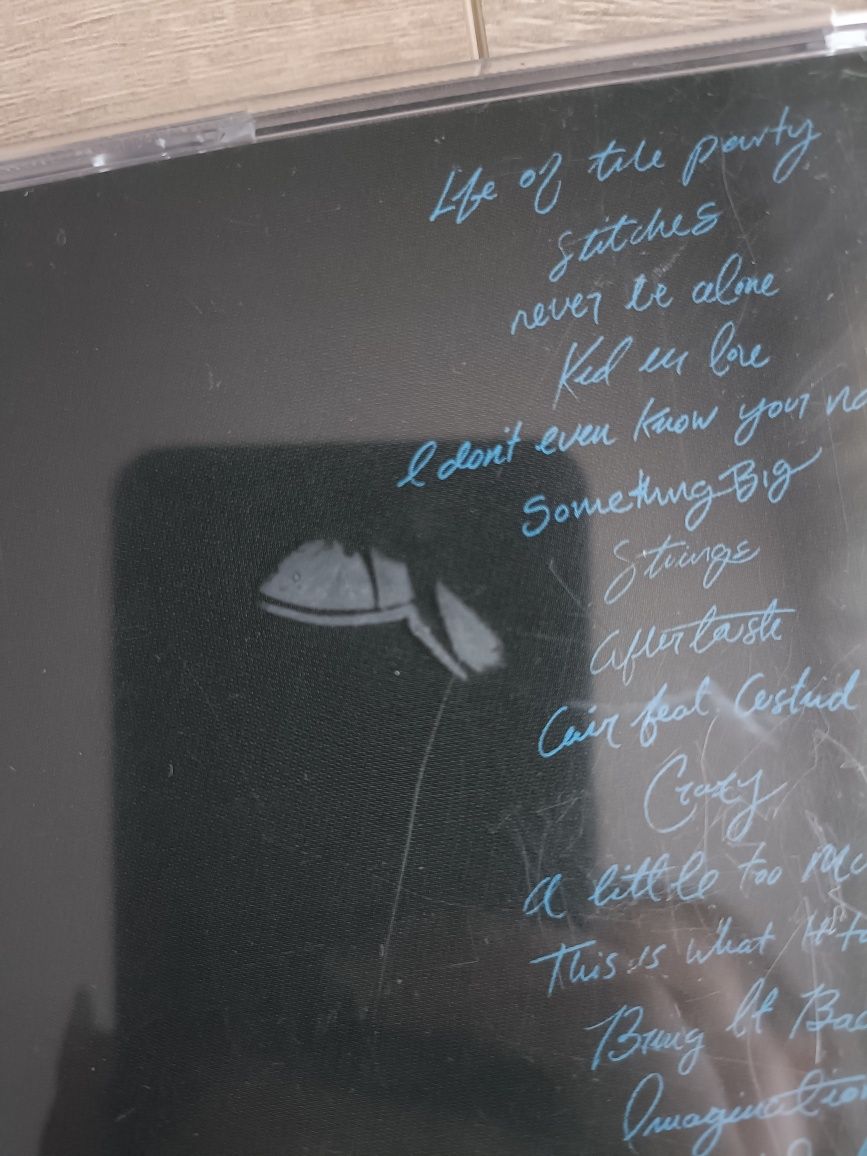 Life of the party
Stitches
never be alone
Kid in love
I don't even know your na
Something Big
Strings
Aftertaste
Air feat. Astrid
Crazy
A little too Mu
This is what it ta
Bring It Bac
Imagination